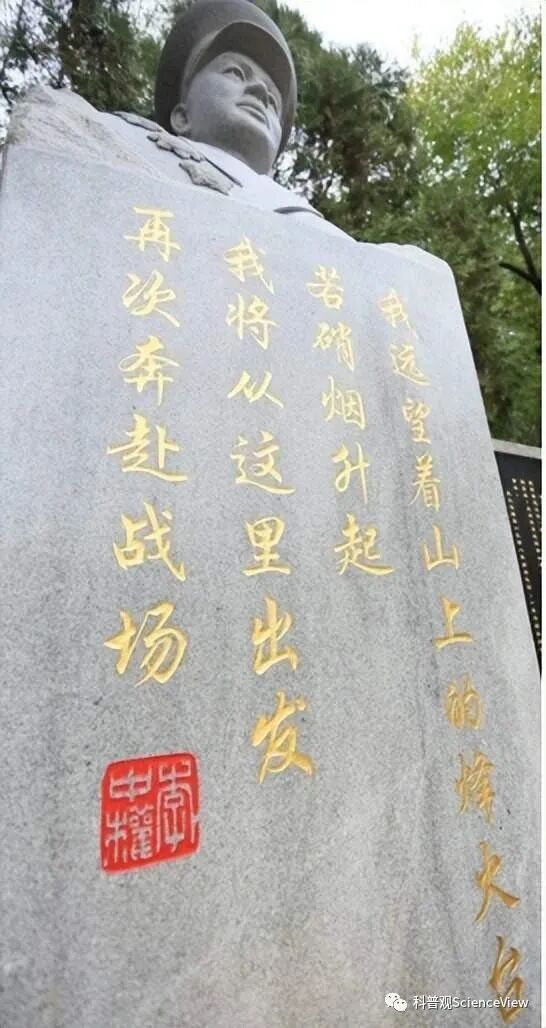 我远望着山上的烽火台
若硝烟升起
我将从这里出发
再次奔赴战场
李中权
科普观ScienceView